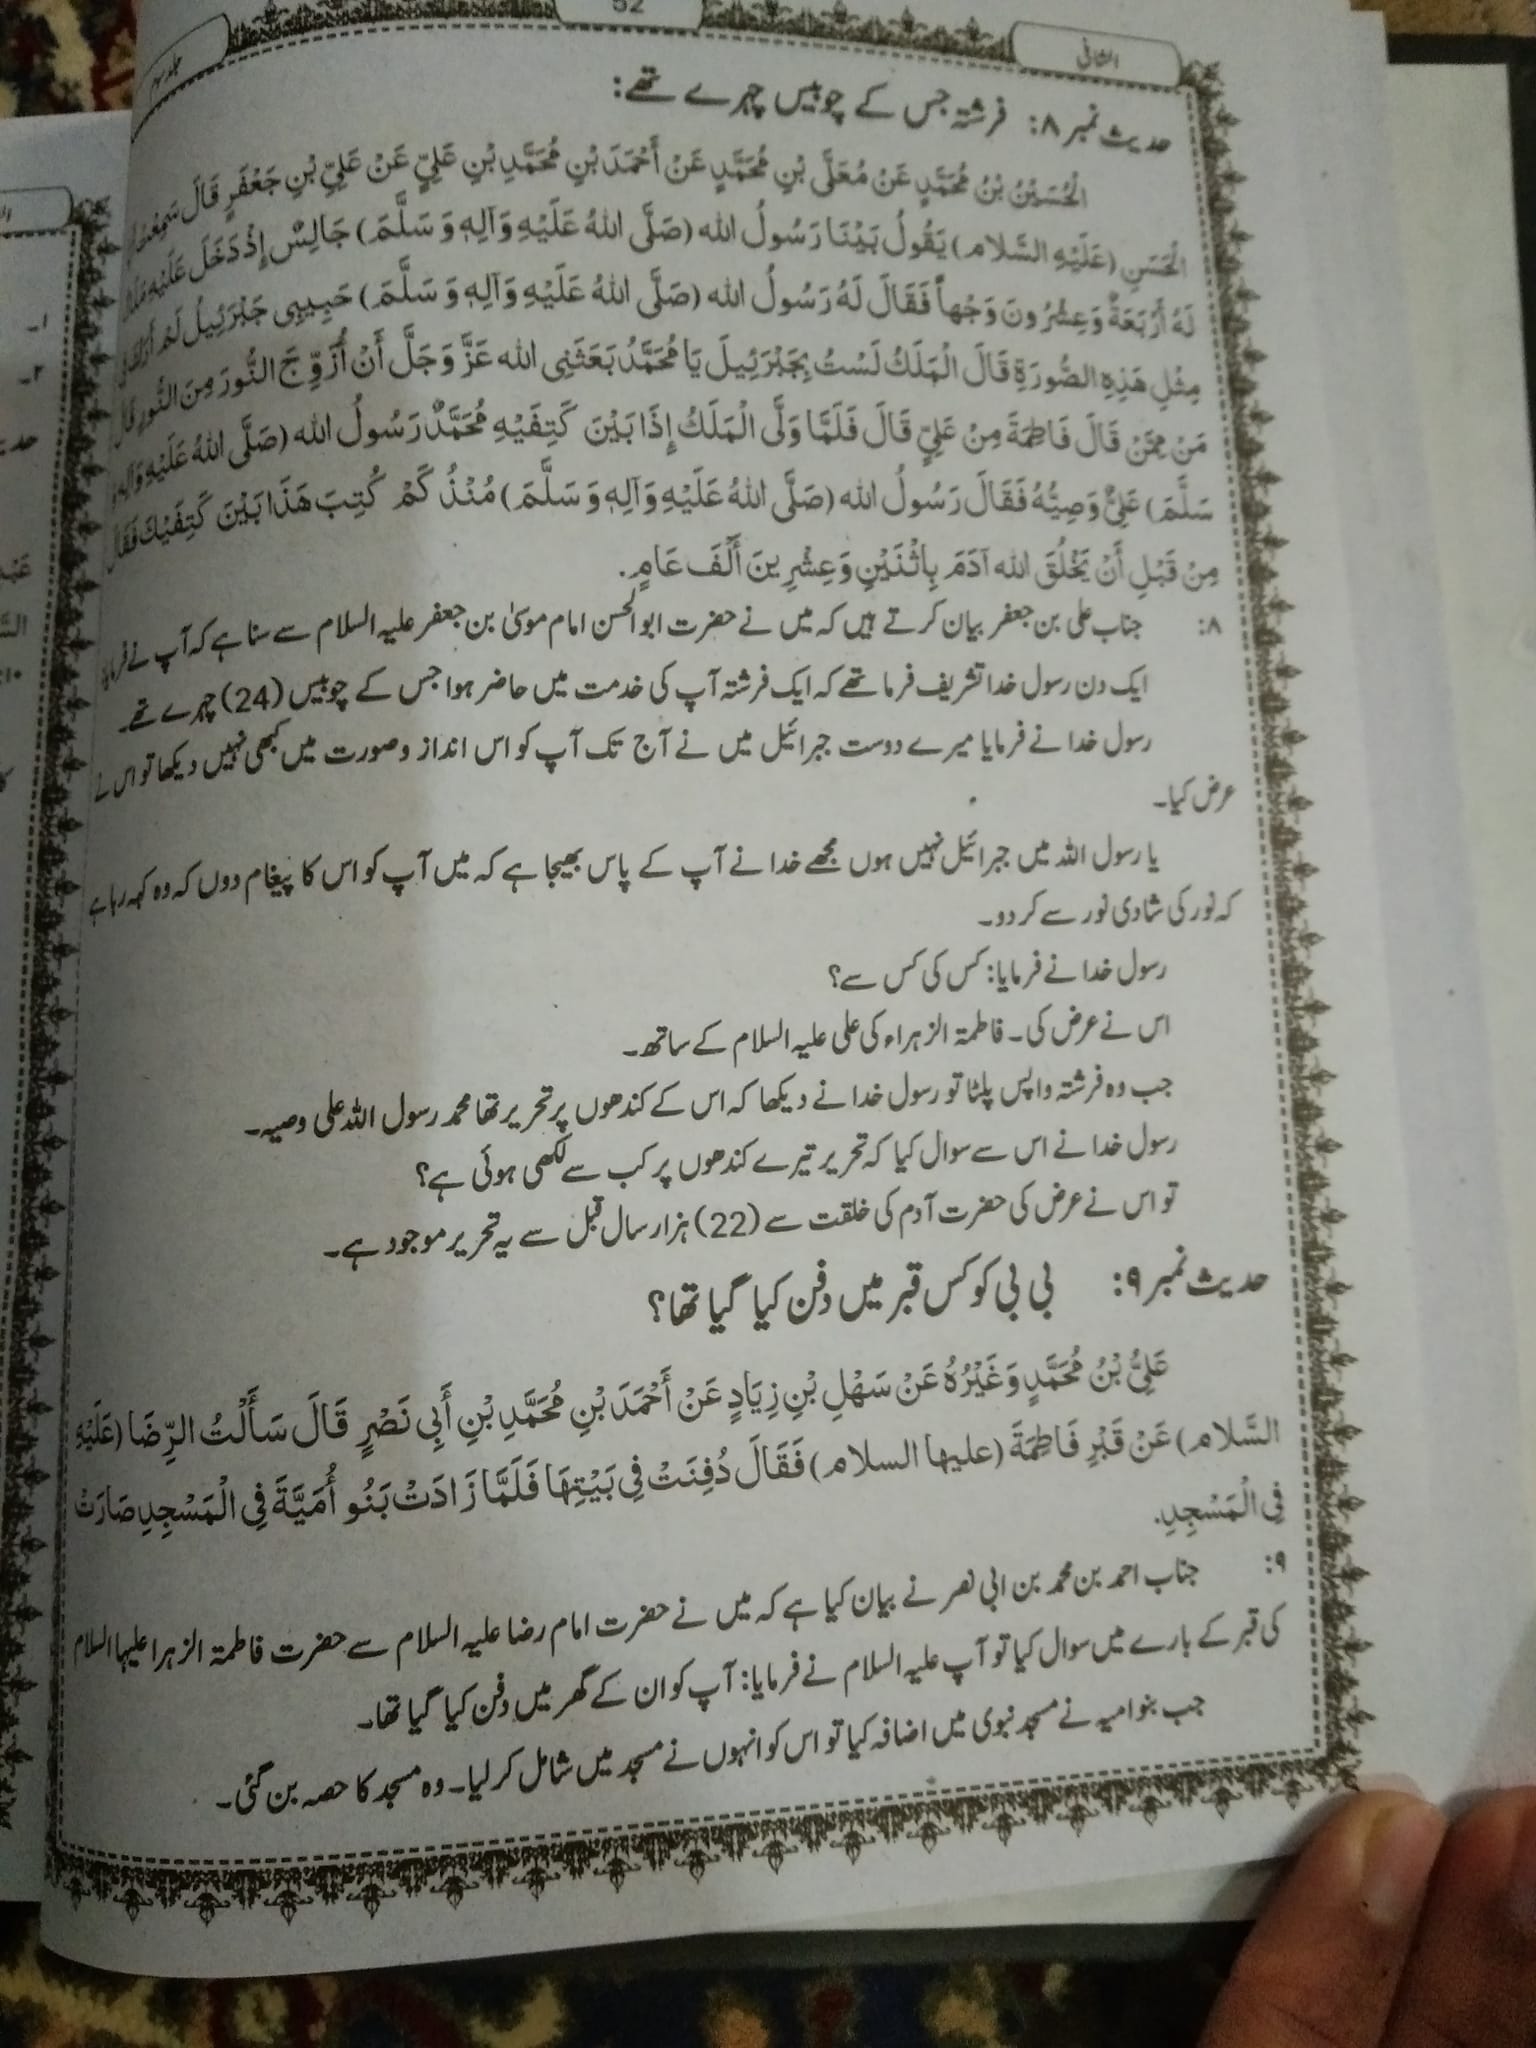 52
الشافی
جلد سوم
حدیث نمبر ۸: فرشتہ جس کے چوبیس چہرے تھے:
الْحُسَيْنُ بْنُ مُحَمَّدٍ عَنْ مُعَلَّى بْنِ مُحَمَّدٍ عَنْ أَحْمَدَ بْنِ مُحَمَّدِ بْنِ عَلِيٍّ عَنْ عَلِيِّ بْنِ جَعْفَرٍ قَالَ سَمِعْتُ
الْحَسَنِ (عَلَيْهِ السَّلام) يَقُولُ بَيْنَا رَسُولُ الله (صَلَّى اللهُ عَلَيْهِ وَآلِهِ وَ سَلَّمَ) جَالِسٌ إِذْ دَخَلَ عَلَيْهِ مَلَكٌ
لَهُ أَرْبَعَةٌ وَعِشْرُونَ وَجْهاً فَقَالَ لَهُ رَسُولُ الله (صَلَّى اللهُ عَلَيْهِ وَآلِهِ وَ سَلَّمَ) حَبِيبِي جَبْرَئِيلُ لَمْ أَرَكَ فِي
مِثْلِ هَذِهِ الصُّورَةِ قَالَ الْمَلَكُ لَسْتُ بِجَبْرَئِيلَ يَا مُحَمَّدُ بَعَثَنِي الله عَزَّ وَجَلَّ أَنْ أُزَوِّجَ النُّورَ مِنَ النُّورِ قَالَ
مَنْ مِمَّنْ قَالَ فَاطِمَةَ مِنْ عَلِيٍّ قَالَ فَلَمَّا وَلَّى الْمَلَكُ إِذَا بَيْنَ كَتِفَيْهِ مُحَمَّدٌ رَسُولُ الله (صَلَّى اللهُ عَلَيْهِ وَآلِهِ وَ
سَلَّمَ) عَلِيٌّ وَصِيُّهُ فَقَالَ رَسُولُ الله (صَلَّى اللهُ عَلَيْهِ وَآلِهِ وَ سَلَّمَ) مُنْذُ كَمْ كُتِبَ هَذَا بَيْنَ كَتِفَيْكَ فَقَالَ
مِنْ قَبْلِ أَنْ يَخْلُقَ الله آدَمَ بِاثْنَيْنِ وَعِشْرِينَ أَلْفَ عَامٍ.
۸: جناب علی بن جعفر بیان کرتے ہیں کہ میں نے حضرت ابوالحسن امام موسیٰ بن جعفر علیہ السلام سے سنا ہے کہ آپ نے فرمایا
ایک دن رسول خدا تشریف فرما تھے کہ ایک فرشتہ آپ کی خدمت میں حاضر ہوا جس کے چوبیس (24) چہرے تھے۔
رسول خدا نے فرمایا میرے دوست جبرائیل میں نے آج تک آپ کو اس انداز و صورت میں کبھی نہیں دیکھا تو اس نے
عرض کیا۔
یا رسول اللہ میں جبرائیل نہیں ہوں مجھے خدا نے آپ کے پاس بھیجا ہے کہ میں آپ کو اس کا پیغام دوں کہ وہ کہہ رہا ہے
کہ نور کی شادی نور سے کر دو۔
رسول خدا نے فرمایا: کس کی کس سے؟
اس نے عرض کی۔ فاطمۃ الزہراء کی علی علیہ السلام کے ساتھ۔
جب وہ فرشتہ واپس پلٹا تو رسول خدا نے دیکھا کہ اس کے کندھوں پر تحریر تھا محمد رسول اللہ علی وصیہ۔
رسول خدا نے اس سے سوال کیا کہ تحریر تیرے کندھوں پر کب سے لکھی ہوئی ہے؟
تو اس نے عرض کی حضرت آدم کی خلقت سے (22) ہزار سال قبل سے یہ تحریر موجود ہے۔
حدیث نمبر ۹: بی بی کو کس قبر میں دفن کیا گیا تھا؟
عَلِيُّ بْنُ مُحَمَّدٍ وَغَيْرُهُ عَنْ سَهْلِ بْنِ زِيَادٍ عَنْ أَحْمَدَ بْنِ مُحَمَّدِ بْنِ أَبِي نَصْرٍ قَالَ سَأَلْتُ الرِّضَا (عَلَيْهِ
السَّلام) عَنْ قَبْرِ فَاطِمَةَ (علیہا السلام) فَقَالَ دُفِنَتْ فِي بَيْتِهَا فَلَمَّا زَادَتْ بَنُو أُمَيَّةَ فِي الْمَسْجِدِ صَارَتْ
فِي الْمَسْجِدِ.
۹: جناب احمد بن محمد بن ابی نصر نے بیان کیا ہے کہ میں نے حضرت امام رضا علیہ السلام سے حضرت فاطمۃ الزہرا علیہا السلام
کی قبر کے بارے میں سوال کیا تو آپ علیہ السلام نے فرمایا: آپ کو ان کے گھر میں دفن کیا گیا تھا۔
جب بنو امیہ نے مسجد نبوی میں اضافہ کیا تو اس کو انہوں نے مسجد میں شامل کر لیا۔ وہ مسجد کا حصہ بن گئی۔